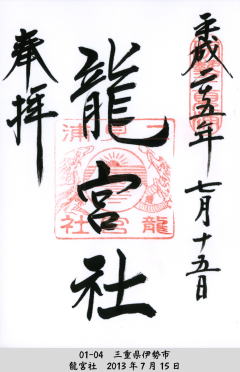 平成二十五年 七月十五日
龍宮社
奉拝
二見浦
龍宮社
01-04 三重県伊勢市
龍宮社 2013年7月15日